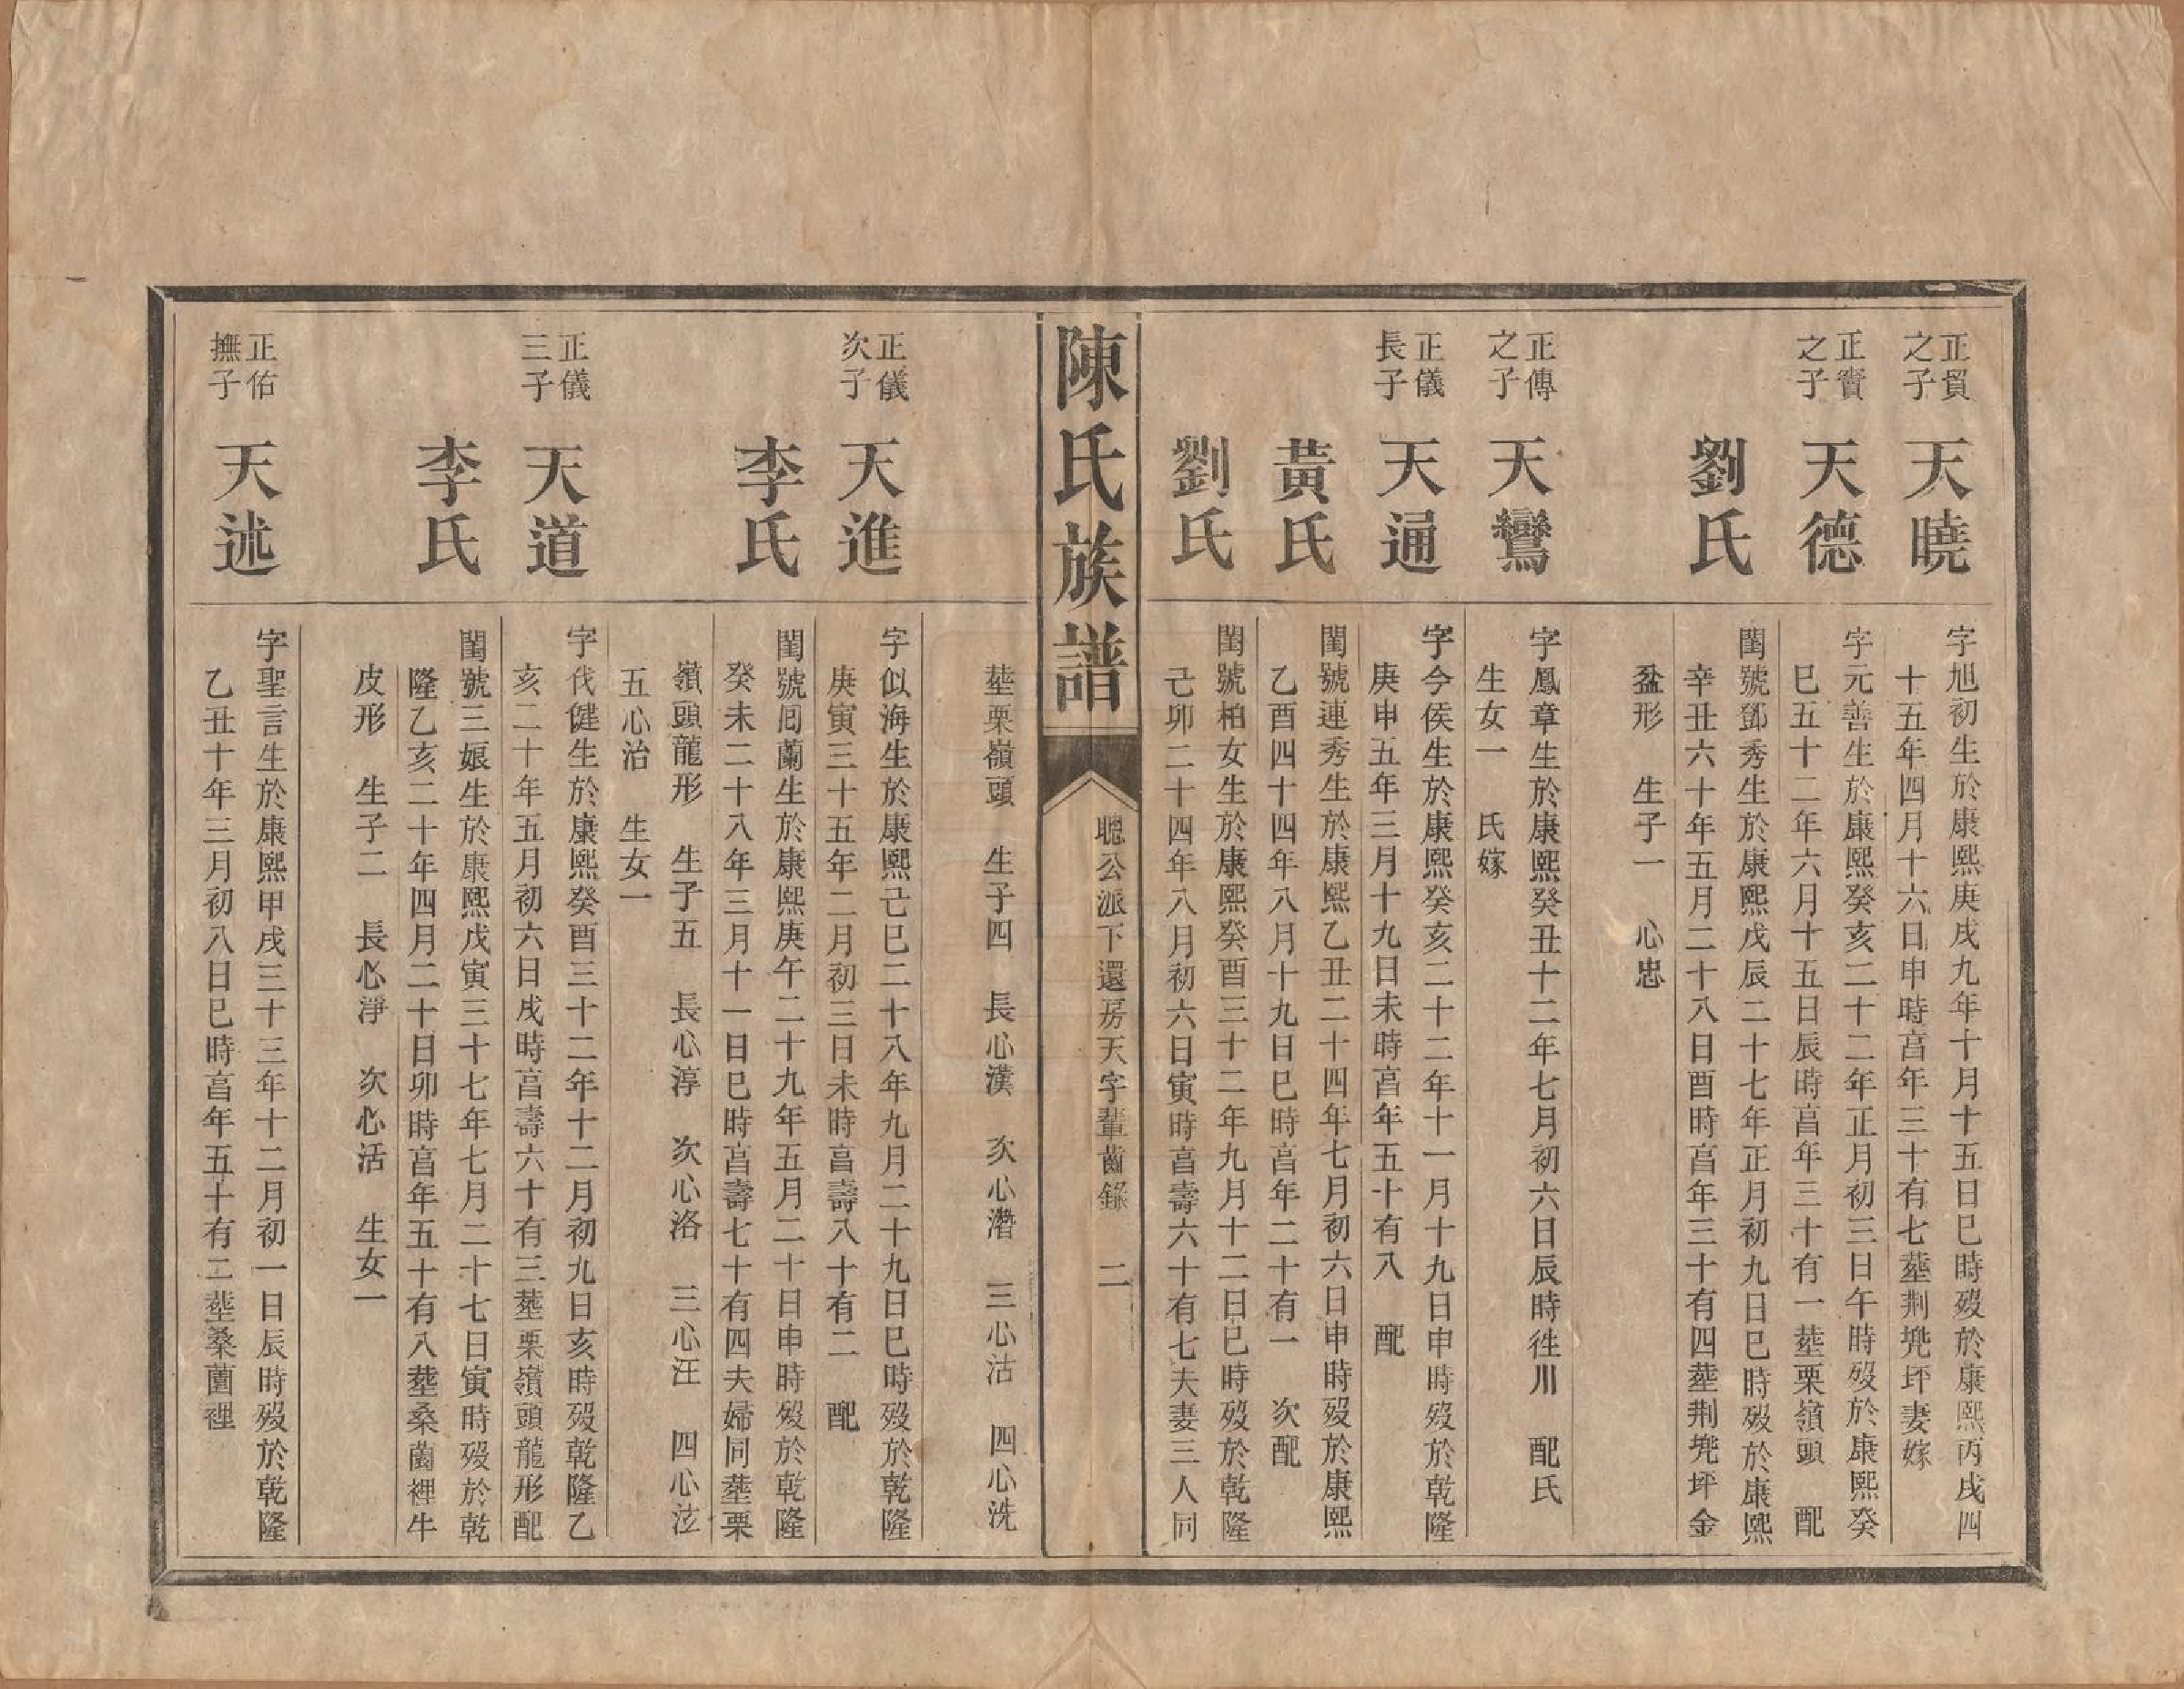 正貿
之子
天曉
字旭初生於康熙庚戌九年十月十五日巳時歿於康熙丙戌四
十五年四月十六日申時亯年三十有七塟荆兠坪妻嫁
正賓
之子
天德
字元善生於康熙癸亥二十二年正月初三日午時歿於康熙癸
巳五十二年六月十五日辰時亯年三十有一塟栗嶺頭 配
劉氏
閨號鄧秀生於康熙戊辰二十七年正月初九日巳時歿於康熙
辛丑六十年五月二十八日酉時亯年三十有四塟荆兠坪金
盆形 生子一 心忠
正傳
之子
天鸞
字鳳章生於康熙癸丑十二年七月初六日辰時徃川 配氏
生女一 氏嫁
正儀
長子
天通
字今侯生於康熙癸亥二十二年十一月十九日申時歿於乾隆
庚申五年三月十九日未時亯年五十有八 配
黃氏
閨號連秀生於康熙乙丑二十四年七月初六日申時歿於康熙
乙酉四十四年八月十九日巳時亯年二十有一 次配
劉氏
閨號柏女生於康熙癸酉三十二年九月十二日巳時歿於乾隆
己卯二十四年八月初六日寅時亯壽六十有七夫妻三人同
陳氏族譜
聰公派下還房天字輩齒錄 二
塟栗嶺頭 生子四 長心漢 次心潛 三心沽 四心洗
正儀
次子
天進
字似海生於康熙己巳二十八年九月二十九日巳時歿於乾隆
庚寅三十五年二月初三日未時亯壽八十有二 配
李氏
閨號囘蘭生於康熙庚午二十九年五月二十日申時歿於乾隆
癸未二十八年三月十一日巳時亯壽七十有四夫婦同塟栗
嶺頭龍形 生子五 長心淳 次心洛 三心汪 四心泫
五心治 生女一
正儀
三子
天道
字伐健生於康熙癸酉三十二年十二月初九日亥時歿乾隆乙
亥二十年五月初六日戌時亯壽六十有三塟栗嶺頭龍形配
李氏
閨號三娘生於康熙戊寅三十七年七月二十七日寅時歿於乾
隆乙亥二十年四月二十日卯時亯年五十有八塟桑薗裡牛
皮形 生子二 長心淨 次心活 生女一
正佑
撫子
天述
字聖言生於康熙甲戌三十三年十二月初一日辰時歿於乾隆
乙丑十年三月初八日巳時亯年五十有二塟桑薗裡